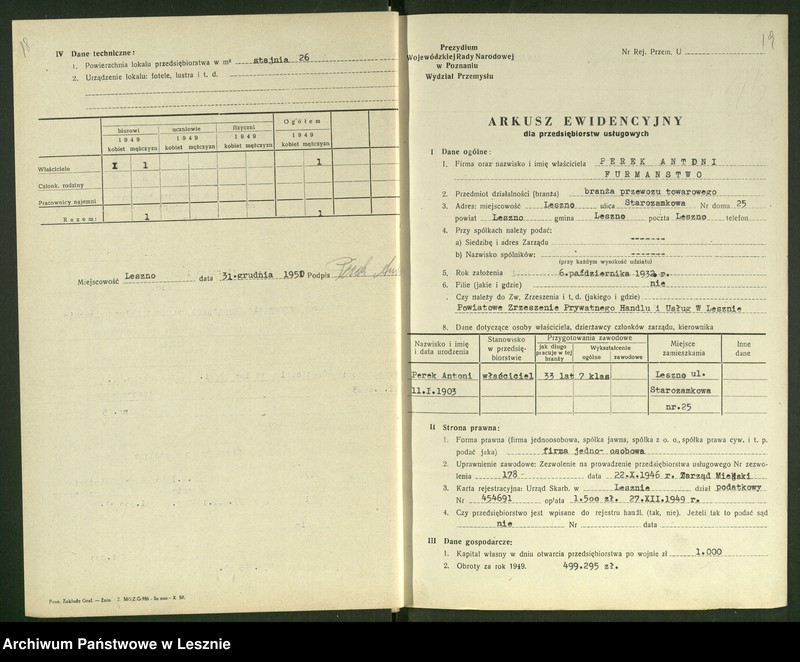 IV Dane techniczne:
1. Powierzchnia lokalu przedsiębiorstwa w m² stajnia 26
2. Urządzenie lokalu: fotele, lustra i t. d.
biurowi uczniowie fizyczni Ogółem
1949 1949 1949 1949
kobiet mężczyzn kobiet mężczyzn kobiet mężczyzn kobiet mężczyzn
Właściciele I 1 1
Członk. rodziny
Pracownicy najemni
Razem: 1 1
Miejscowość Leszno data 31.grudnia 1951 Podpis Perek
19
Prezydium
Wojewódzkiej Rady Narodowej
w Poznaniu
Wydział Przemysłu
Nr Rej. Przem. U
ARKUSZ EWIDENCYJNY
dla przedsiębiorstw usługowych
I Dane ogólne:
1. Firma oraz nazwisko i imię właściciela PEREK ANTONI
FURMAŃSTWO
2. Przedmiot działalności (branża) branża przewozu towarowego
3. Adres: miejscowość Leszno ulica Starozamkowa Nr domu 25
powiat Leszno gmina Leszno poczta Leszno telefon
4. Przy spółkach należy podać:
a) Siedzibę i adres Zarządu -------
b) Nazwisko spólników: -------
(przy każdym wysokość udziału)
5. Rok założenia 6.października 1932 r.
6. Filie (jakie i gdzie) nie
Czy należy do Zw. Zrzeszenia i t. d. (jakiego i gdzie)
Powiatowe Zrzeszenie Prywatnego Handlu i Usług W Lesznie
8. Dane dotyczące osoby właściciela, dzierżawcy członków zarządu, kierownika
Nazwisko i imię i data urodzenia Stanowisko w przedsiębiorstwie Przygotowania zawodowe Miejsce zamieszkania Inne dane
jak długo pracuje w tej branży Wykształcenie
ogólne zawodowe
Perek Antoni właściciel 33 lat 7 klas Leszno ul.
11.I.1903 Starozamkowa
nr.25
II Strona prawna:
1. Forma prawna (firma jednoosobowa, spółka jawna, spółka z o. o., spółka prawa cyw. i t. p.
podać jaka) firma jedno- osobowa
2. Uprawnienie zawodowe: Zezwolenie na prowadzenie przedsiębiorstwa usługowego Nr zezwo-
lenia 178 data 22.X.1946 r. Zarząd Miejski
3. Karta rejestracyjna: Urząd Skarb. w Lesznie dział podatkowy
Nr 454691 opłata 1.500 zł. 27.XII.1949 r.
4. Czy przedsiębiorstwo jest wpisane do rejestru handl. (tak, nie). Jeżeli tak to podać sąd
nie Nr data
III Dane gospodarcze:
1. Kapitał własny w dniu otwarcia przedsiębiorstwa po wojnie zł 1.000
2. Obroty za rok 1949. 499.295 zł.
Archiwum Państwowe w Lesznie